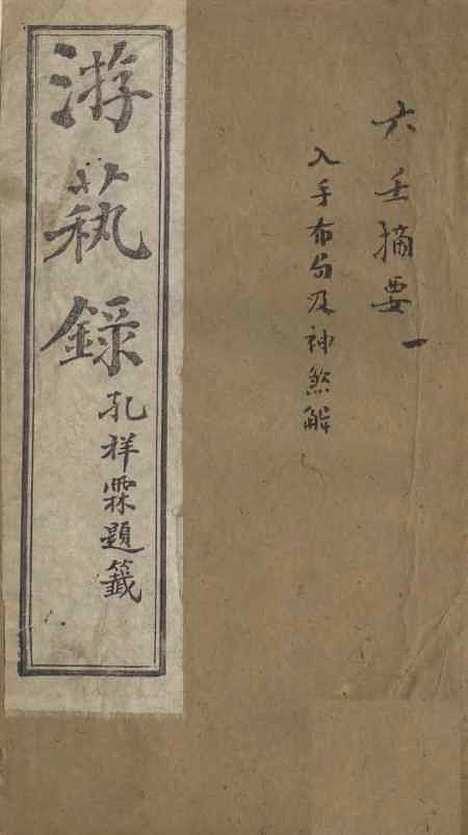 六壬摘要 一
入手布局及神煞解
游蓺錄
孔祥霖題籤